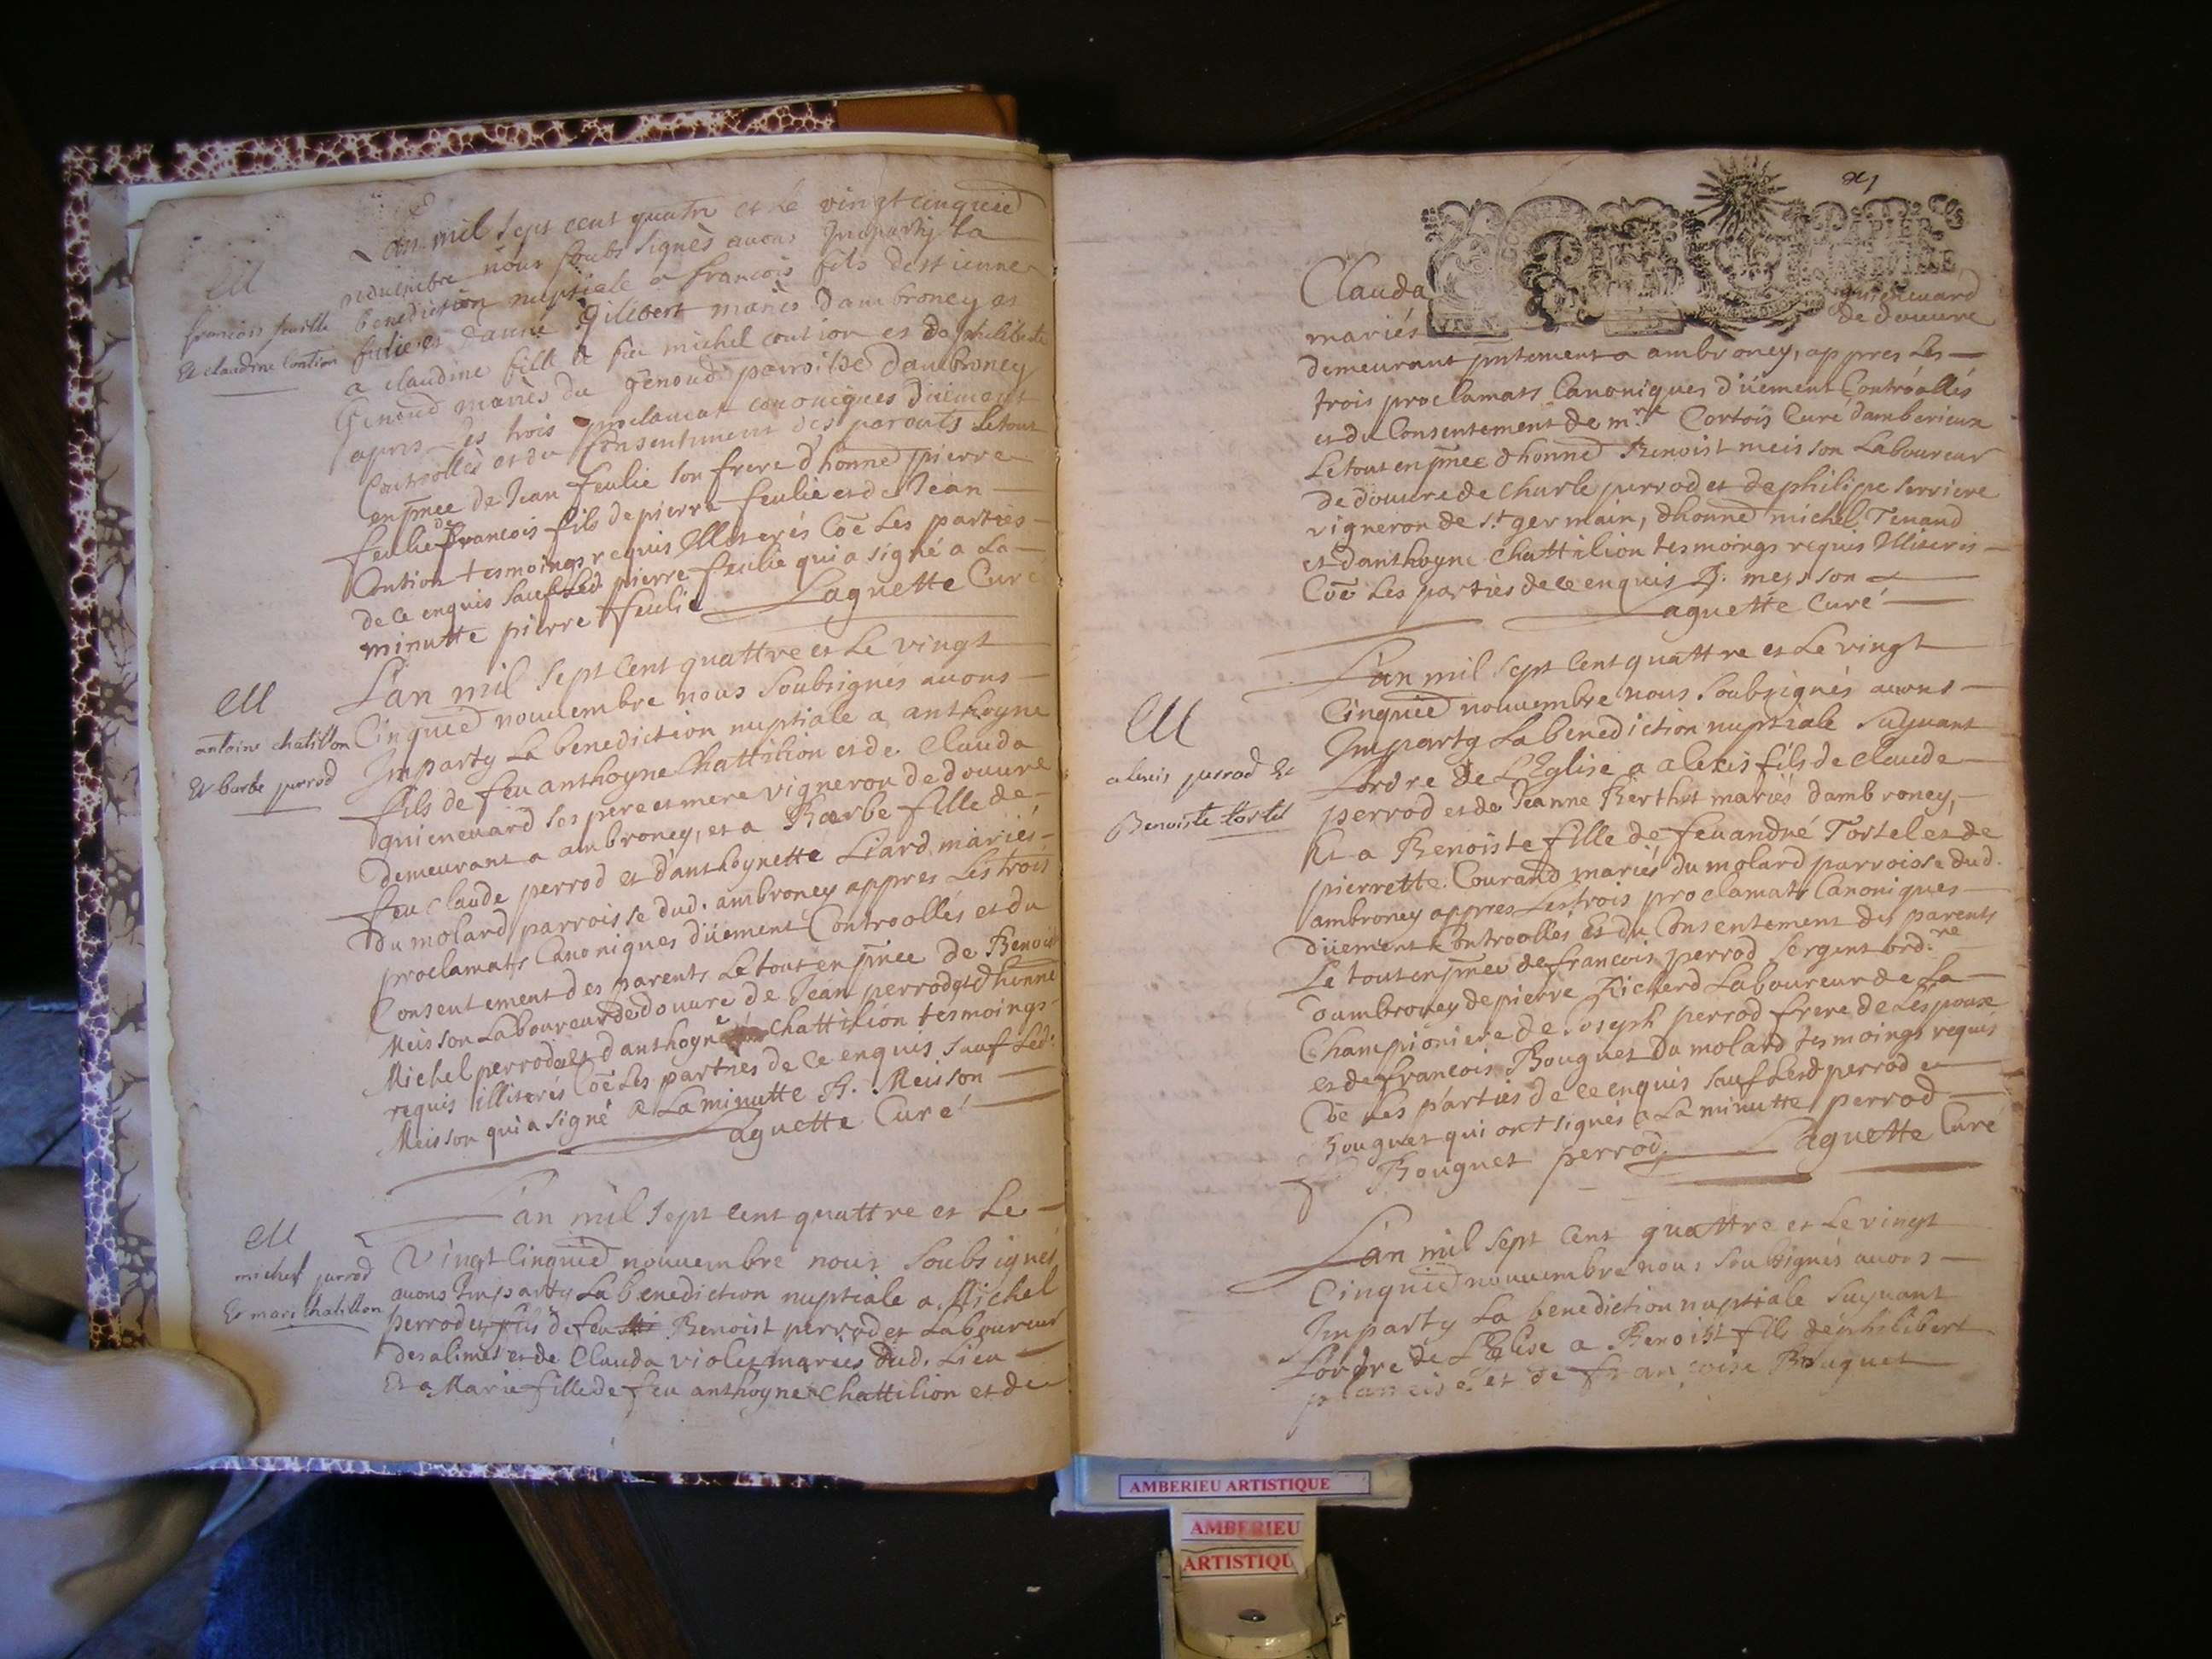 L'an mil sept cent quatre et le vingt cinquied
novembre nous soubs signès avons Imparty la
benediction nuptiale a francois fils destienne
feulie et danne Gilibert mariès dambroney et
a claudine fille de feu michel contion et de philiberte
Genoud mariès du genoud parroisse dambroney
apres Les trois proclamats canoniques düement
Controllès et du Consentement des parents Le tout
en pnce de Jean feulie son frere d'honned pierre
feulie de francois fils de pierre feulie et de Jean
Contion tesmoings requis illiterés Coe Les parties
de ce enquis sauf Led pierre feulie qui a signé a La
minutte pierre feulie Laguette Curé
M
francois feuille
Et claudine Contion
L'an mil sept Cent quattre et Le vingt
Cinquied nouuembre nous soubsignés auons
Imparty La benediction nuptiale a anthoyne
fils de feu anthoyne Chattilion et de Clauda
guichenuard ses pere et mere vigneron de douure
demeurant a ambroney, et a Barbe fille de
feu Claude perrod et d'anthoynette Liard mariés
du molard parroisse dud. ambroney appres Les trois
proclamats Canoniques düement Controollés et du
Consentement des parents Le tout en pnce de Benoist
Meisson Laboureur de douure de Jean perrod et d'honned
Michel perrod et d'anthoyne Chattilion tesmoings
requis illiterés Coe Les parties de Ce enquis sauf Led.
Meisson qui a signé a La minutte B. Meisson
Laguette Curé
M
antoine chatillon
Et barbe perrod
L'an mil sept Cent quattre et Le
Vingt Cinquied nouuembre nous soubsignés
auons Imparty La benediction nuptiale a Michel
perrod et fils de feu Benoist perrod et Laboureur
des alimes et de Clauda violet mariés dud. Lieu
Et a Marie fille de feu anthoyne Chattilion et de
M
michel perrod
Et marie chatillon
Clauda guichenuard
mariés de douure
demeurant pntement a ambroney, appres Les
trois proclamats Canoniques düement Controollés
et du Consentement de mre Cortois Curé d'amberieux
Le tout en pnce d'honned Benoist meisson Laboureur
de douure de Charle perrod et de philipe serriere
vigneron de st germain, d'honned michel Tenand
et d'anthoyne Chattilion tesmoings requis Illiterés
Coe Les parties de ce enquis B. meisson
Laguette Curé
L'an mil sept Cent quattre et Le vingt
Cinquied nouuembre nous soubsignés auons
Imparty La benediction nuptiale suyuant
L'ordre de L'Eglise a alexis fils de Claude
perrod et de Jeanne Berthet mariés d'ambroney,
Et a Benoiste fille de feu andré Tortel et de
pierrette Courand mariés du molard parroisse dud.
ambroney appres Les trois proclamats Canoniques
düement Controollés Et du Consentement des parents
Le tout en pnce de francois perrod sergent ord.re
d'ambroney de pierre Richerd Laboureur de La
Championiere de Joseph perrod frere de L'espoux
et de francois Bouguet du molard tesmoings requis
Coe Les parties de ce enquis sauf Lesd perrod et
Bouguet qui ont signés a La minutte perrod
F Bouguet perrod Laguette Curé
M
alexis perrod Et
Benoiste tortel
L'an mil sept Cent quattre et Le vingt
Cinquied nouuembre nous soubsignés auons
Imparty La benediction nuptiale suyuant
L'ordre de L'Eglise a Benoist fils de philibert
et de francoise Bouguet
AMBERIEU ARTISTIQUE
AMBERIEU
ARTISTIQU